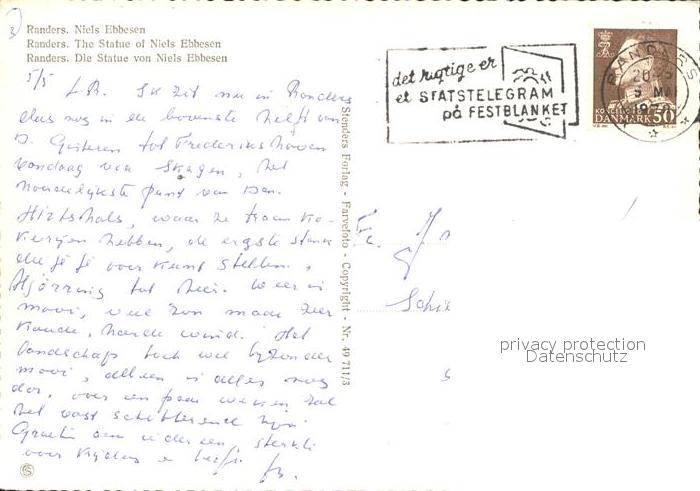 Randers. Niels Ebbesen
Randers. The Statue of Niels Ebbesen
Randers. Die Statue von Niels Ebbesen
5/5 L.R. Ik zit nu in Randers
dus nog in de bovenste helft van
D. Gisteren tot Frederikshaven
vandaag via Skagen, het
noordelijkste punt van Den.
Hirtshals, waar ze traan
hebben, de ergste stank
die je je voor kunt stellen.
Hjørring tot hier. Weer is
mooi, veel zon maar zeer
koude, harde wind. Het
landschap toch wel bijzonder
mooi, alleen is alles nog
dor, over een paar weken zal
het vast schitterend zijn
Groeten aan iedereen, sterkte
voor
Stenders Forlag - Farvefoto - Copyright - Nr. 49 711/3
det rigtige er
et STATSTELEGRAM
på FESTBLANKET
RANDERS
1970
DANMARK 50
Fa.
privacy protection
Datenschutz